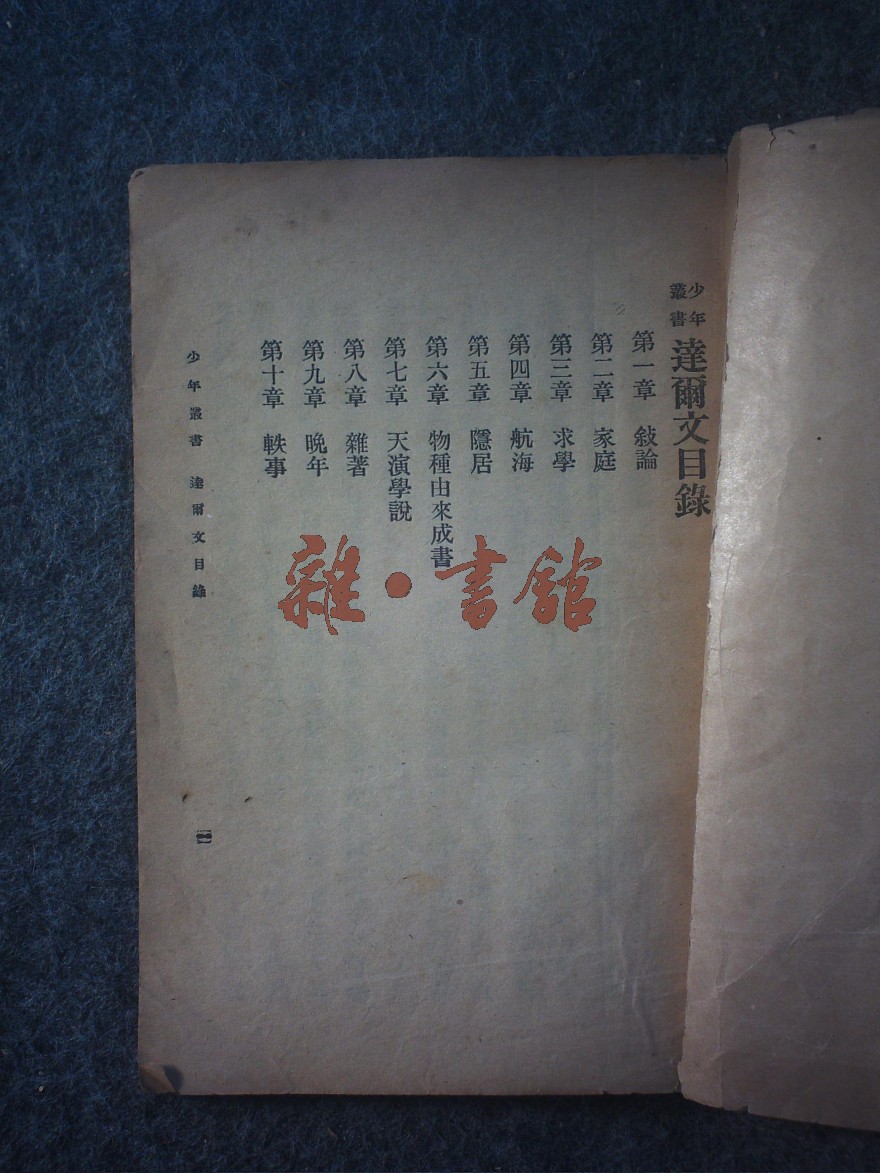 少年叢書
達爾文目錄
第一章　敍論
第二章　家庭
第三章　求學
第四章　航海
第五章　隱居
第六章　物種由來成書
第七章　天演學說
第八章　雜著
第九章　晚年
第十章　軼事
少年叢書　達爾文目錄
一
雜·書館